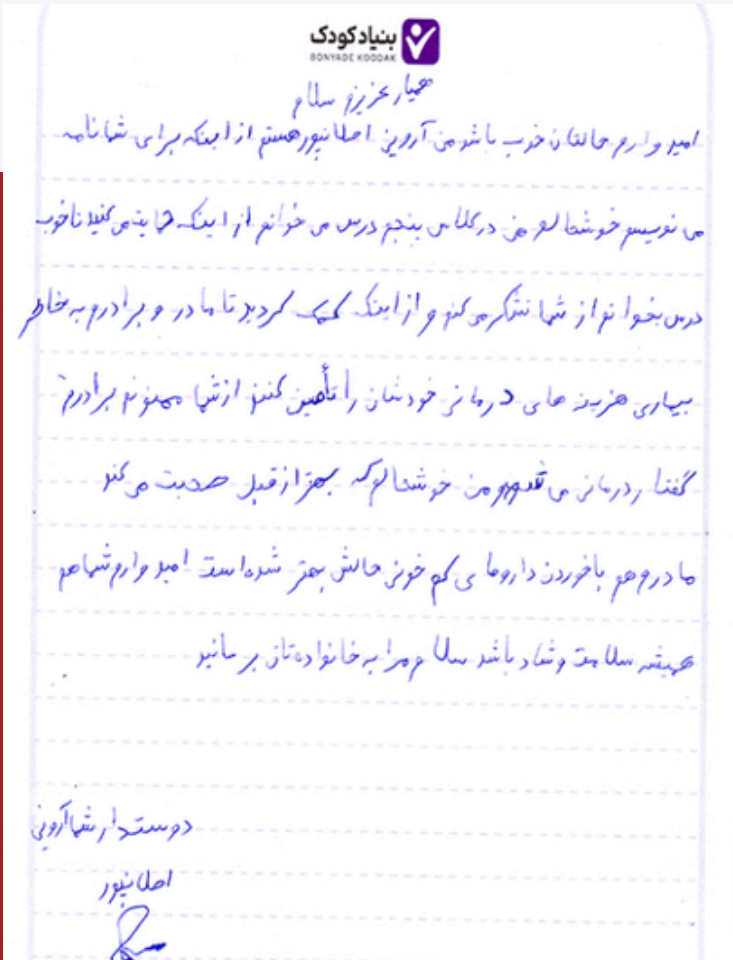 بنیاد کودک
BONYADE KOODAK
همیار عزیزم سلام
امید وارم حالتان خوب باشد من آروین اصلانپور هستم از اینکه برای شما نامه
می نویسم خوشحالم من در کلاس پنجم درس می خوانم از اینکه حمایت می کنید تا خوب
درس بخوانم از شما تشکر می کنم و از اینکه کمک کردید تا مادر و برادرم به خاطر
بیماری هزینه های درمانی خودشان را تأمین کنند از شما ممنونم برادرم
گفتار درمانی می من خوشحالم که بهتر از قبل صحبت می کند
مادرم هم با خوردن داروهای کم خونی حالش بهتر شده است امید وارم شما هم
همیشه سلامت و شاد باشد سلام مرا به خانواده تان برسانید
دوستدار شما آروین
اصلانپور